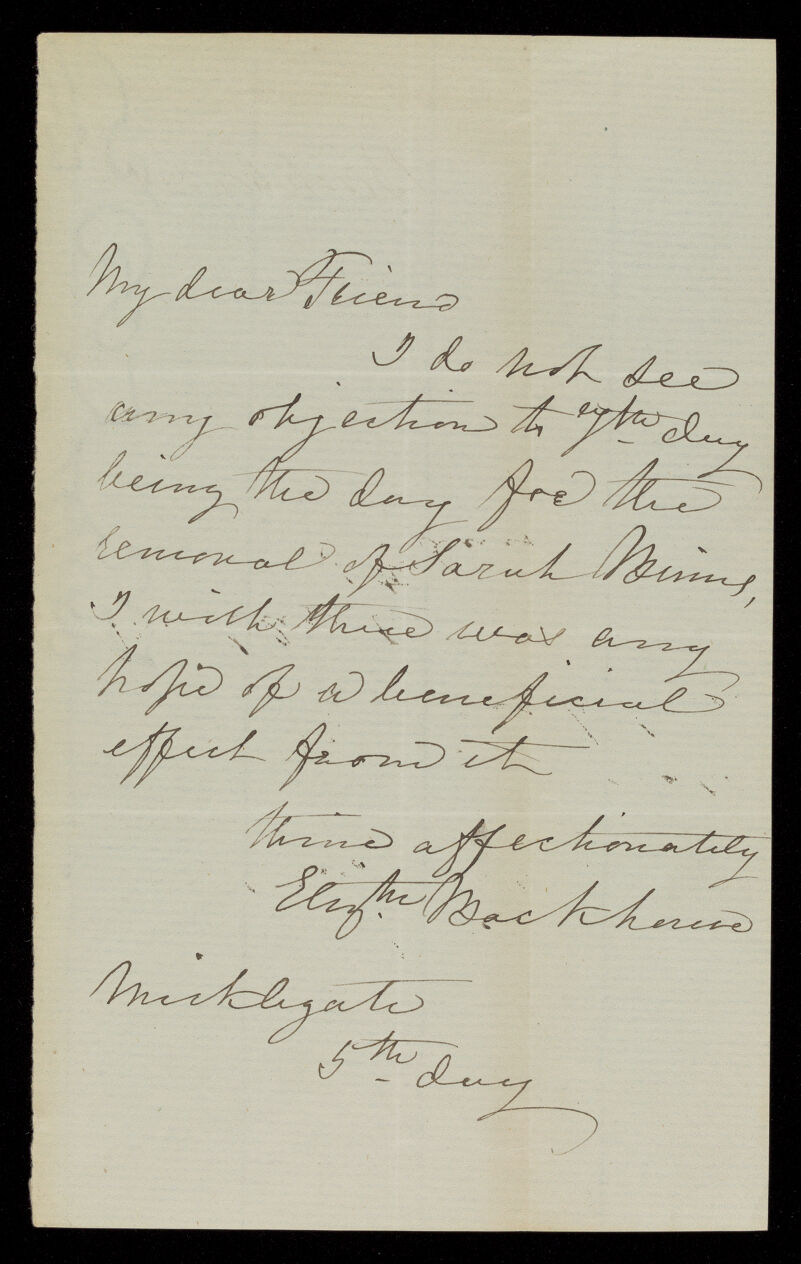 My dear Friend
I do not see
any objection to 7th day
being the day for the
removal of Sarah Binns,
I wish there was any
hope of a beneficial
effect from it
thine affectionately
Elizth. Backhouse
Micklegate
5th day